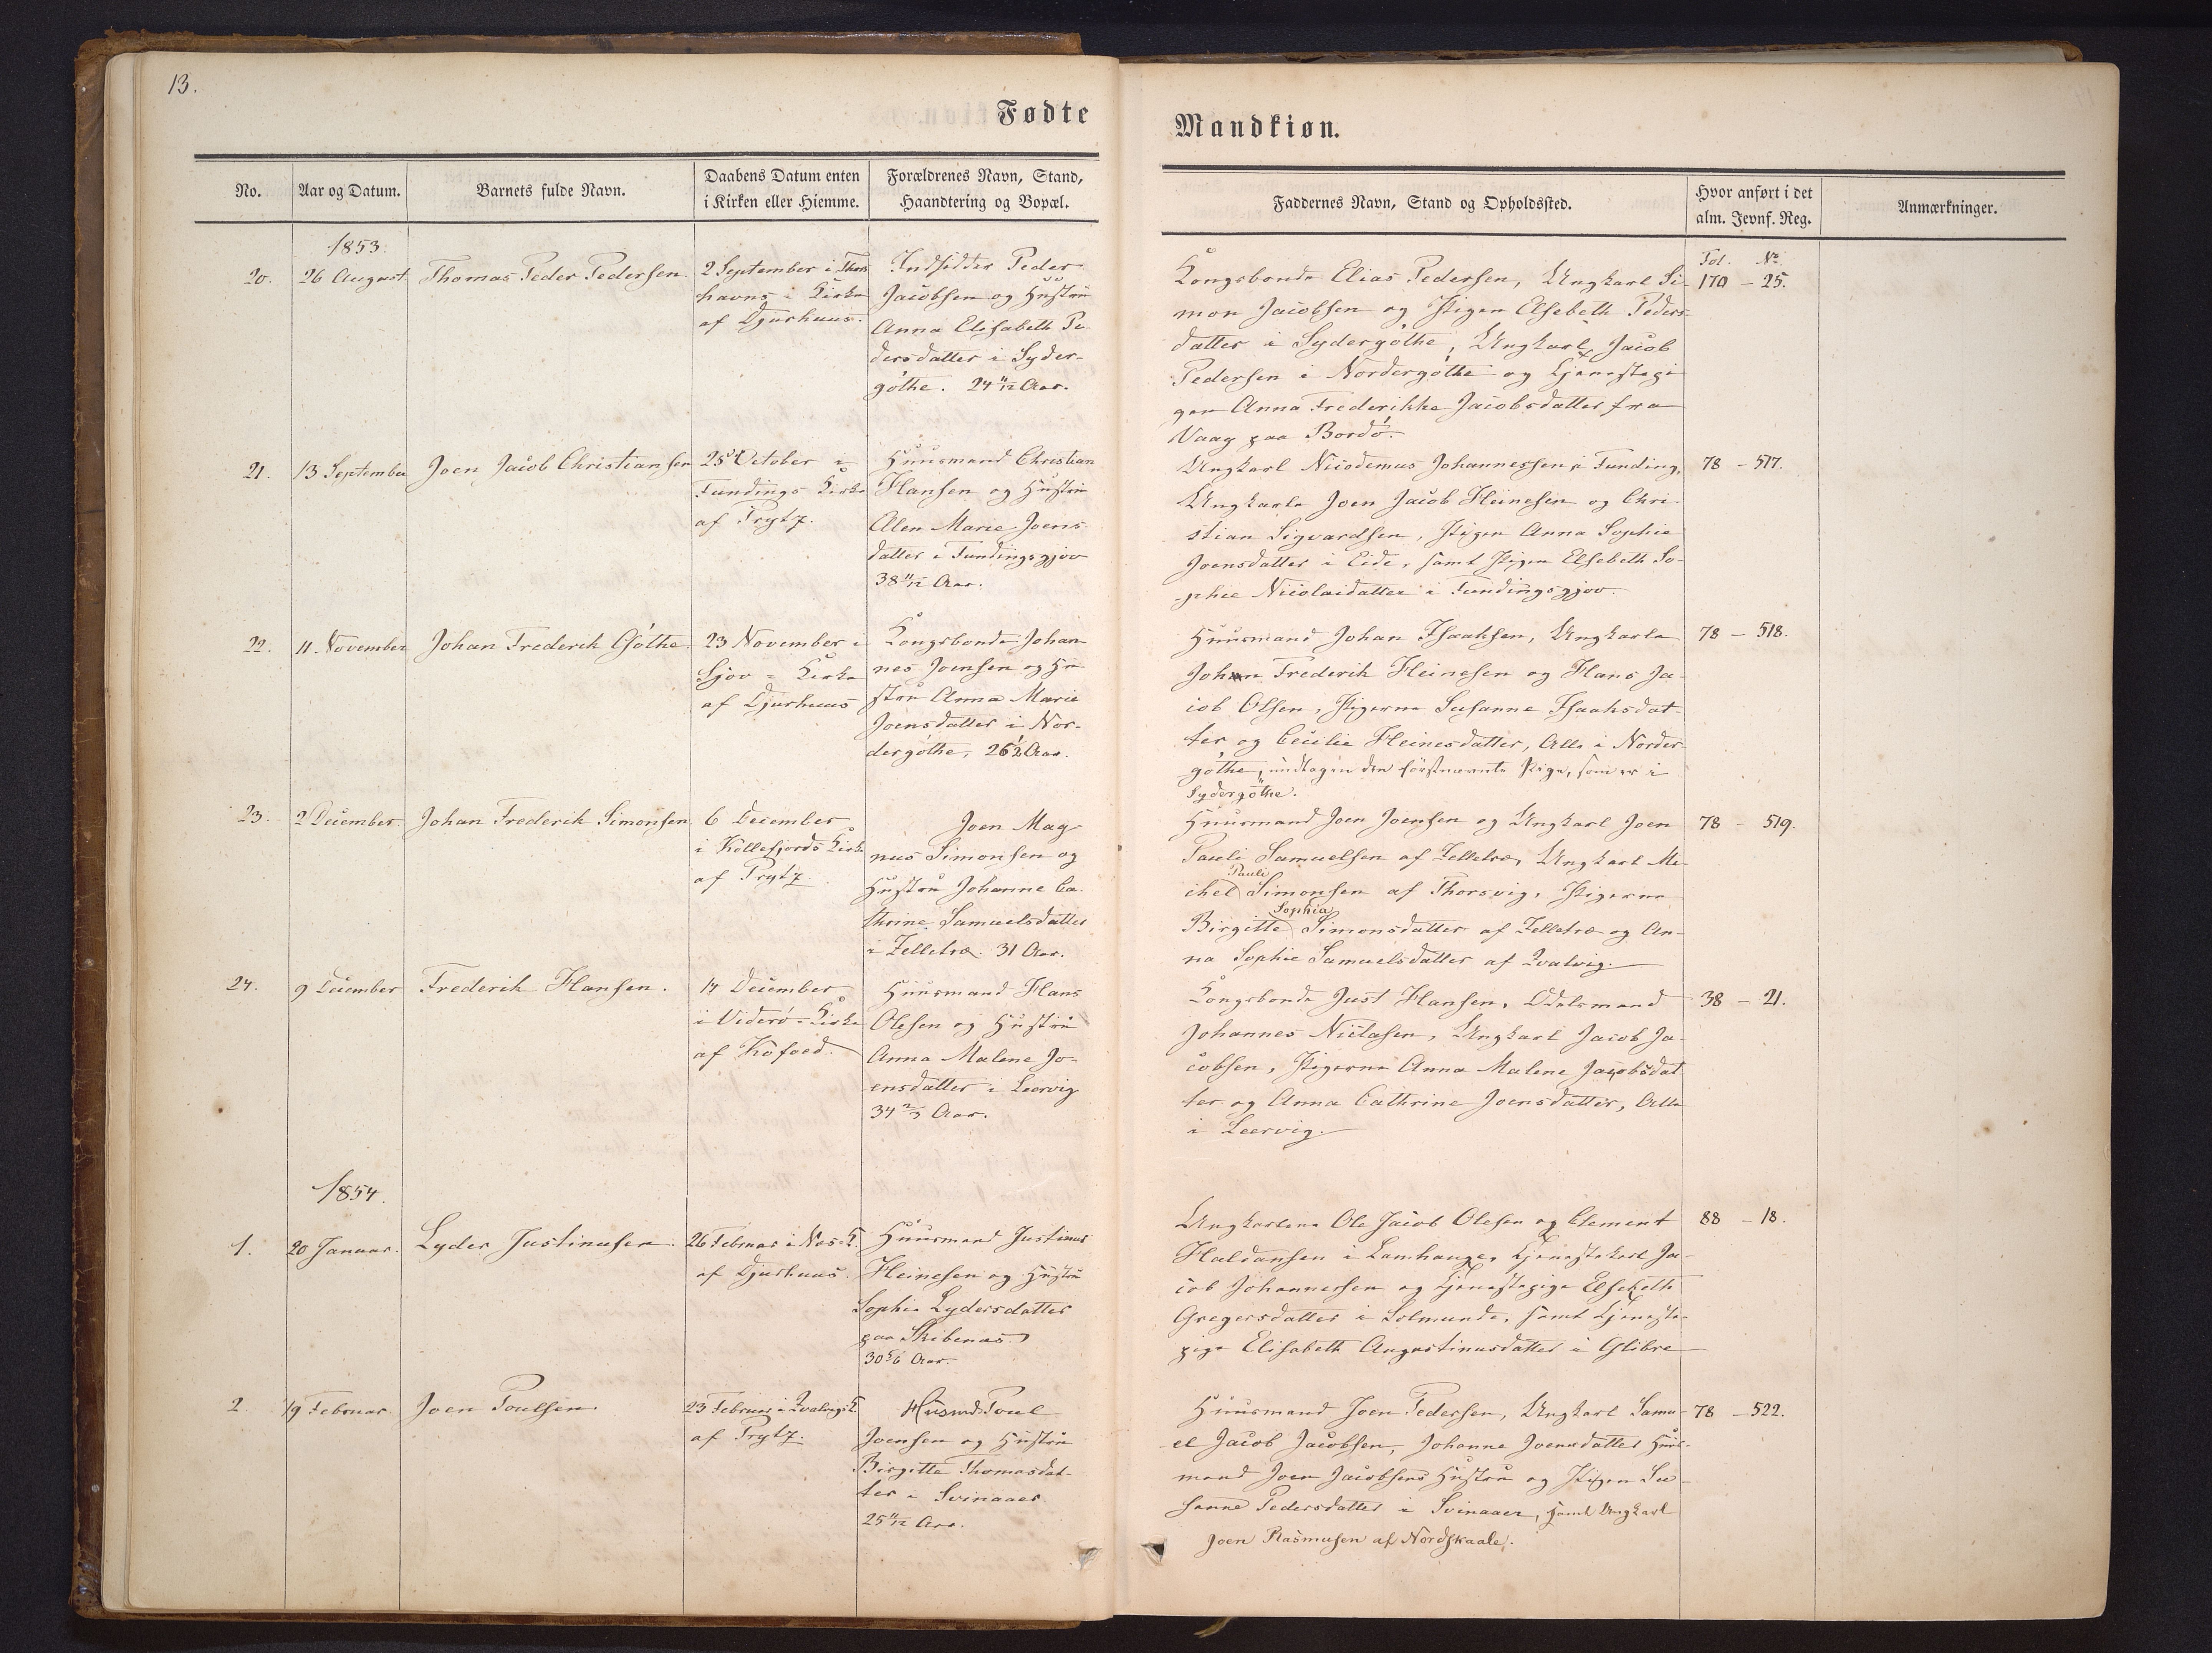 13.
Fødte
Mandkiøn.
No.
Aar og Datum.
Barnets fulde Navn.
Daabens Datum enten
i Kirken eller Hiemme.
Forældrenes Navn, Stand,
Haandtering og Bopæl.
Faddernes Navn, Stand og Opholdssted.
Hvor anført i det
alm. Jevnf. Reg.
Anmærkninger.
1853.
20.
26 August
Thomas Peder Pedersen.
2 September i Thors
havns Kirke
af Djurhuus.
Indsidder Peder
Jacobsen og Hustru
Anna Elisabeth Pe-
dersdatter i Syder-
göthe. 24 11/12 Aar.
Kongsbonde Elias Pedersen, Ungkarl Si-
mon Jacobsen og Pigen Elsebeth Peders-
datter i Sydergöthe, Ungkarl Jacob
Pedersen i Nordergöthe og Tjenestepi-
gen Anna Frederikke Jacobsdatter fra
Vaag paa Bordö.
Fol. No.
170 - 25.
21.
13 September
Joen Jacob Christiansen
25 October i
Fundings Kirke
af Prytz.
Huusmand Christian
Hansen og Hustru
Alen Marie Joens-
datter i Fundingsgjov
38 11/12 Aar.
Ungkarl Nicodemus Johannessen i Funding,
Ungkarle Joen Jacob Heinesen og Chri-
stian Sigvardsen, Pigen Anna Sophie
Joensdatter i Eide, samt Pigen Elsebeth So-
phie Nicolaidatter i Fundingsgjov.
78 - 517.
22.
11. November
Johan Frederik Göthe
23 November i
Gjov - Kirke
af Djurhuus
Kongsbonde Johan-
nes Joensen og Hu-
stru Anna Marie
Joensdatter i Nor-
dergöthe, 26 1/2 Aar.
Huusmand Johan Isaaksen, Ungkarle
Johan Frederik Heinesen og Hans Ja-
cob Olsen, Pigerne Susanne Isaaksdat-
ter og Cecilie Heinesdatter, Alle i Norder-
göthe, undtagen den förstnævnte Pige, som er i
Sydergöthe.
78 - 518.
23.
2 December.
Johan Frederik Simonsen
6 December
i Kollefjords Kirke
af Prytz.
Joen Mag-
nus Simonsen og
Hustru Johanne Ca-
thrine Samuelsdatter
i Zelletræ. 31 Aar.
Huusmand Joen Joensen og Ungkarl Joen
Pauli Samuelsen af Zelletræ, Ungkarl Mi-
Pauli
chel Simonsen af Thorsvig, Pigerne
Sophia
Birgitte Simonsdatter af Zelletræ og An-
na Sophie Samuelsdatter af Qvalvig.
78 - 519.
24.
9 December
Frederik Hansen.
14 December
i Viderö - Kirke
af Kofoed.
Huusmand Hans
Olesen og Hustru
Anna Malene Jo-
ensdatter i Leervig
34 2/3 Aar.
Kongsbonde Just Hansen, Odelsmand
Johannes Niclasen, Ungkarl Jacob Ja-
cobsen, Pigerne Anna Malene Jacobsdat-
ter og Anna Cathrine Joensdatter, Alle
i Leervig.
38 - 21.
1854.
1.
20 Januar.
Lyder Justinusen
26 Februar i Næs-K.
af Djurhuus.
Huusmand Justinus
Heinesen og Hustru
Sophie Lydersdatter
paa Skibenæs.
30 5/6 Aar.
Ungkarlene Ole Jacob Olesen og Clement
Haldansen i Lamhauge, Tjenestekarl Ja-
cob Johannessen og Tjenestepige Elsebeth
Gregersdatter i Solmunde, samt Tjeneste-
pige Elisabeth Augustinusdatter i Glibre
88 - 18.
2
19 Februar
Joen Poulsen
23 Februar i Qvalvigs K.
af Prytz.
Husmd. Poul
Joensen og Hustru
Birgitte Thomasdat-
ter i Svinaaer
25 11/12 Aar.
Huusmand Joen Pedersen, Ungkarl Samu-
el Jacob Jacobsen, Johanne Joensdatter Huus-
mand Joen Jacobsens Hustru og Pigen Su-
sanne Pedersdatter i Svinaaer, samt Ungkarl
Joen Rasmusen af Nordskaale.
78 - 522.